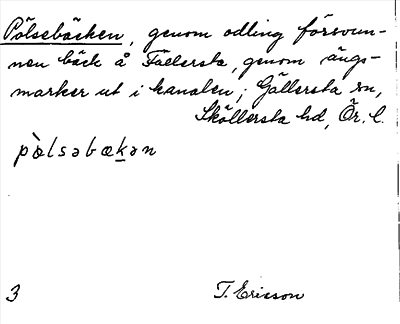 Pölsebäcken, genom odling försvun-
nen bäck å Fallersta, genom ängs-
marker ut i kanalen; Gällersta sn,
Sköllersta hd, Ör. l.
pò̀lsəbækən
3 T. Ericson